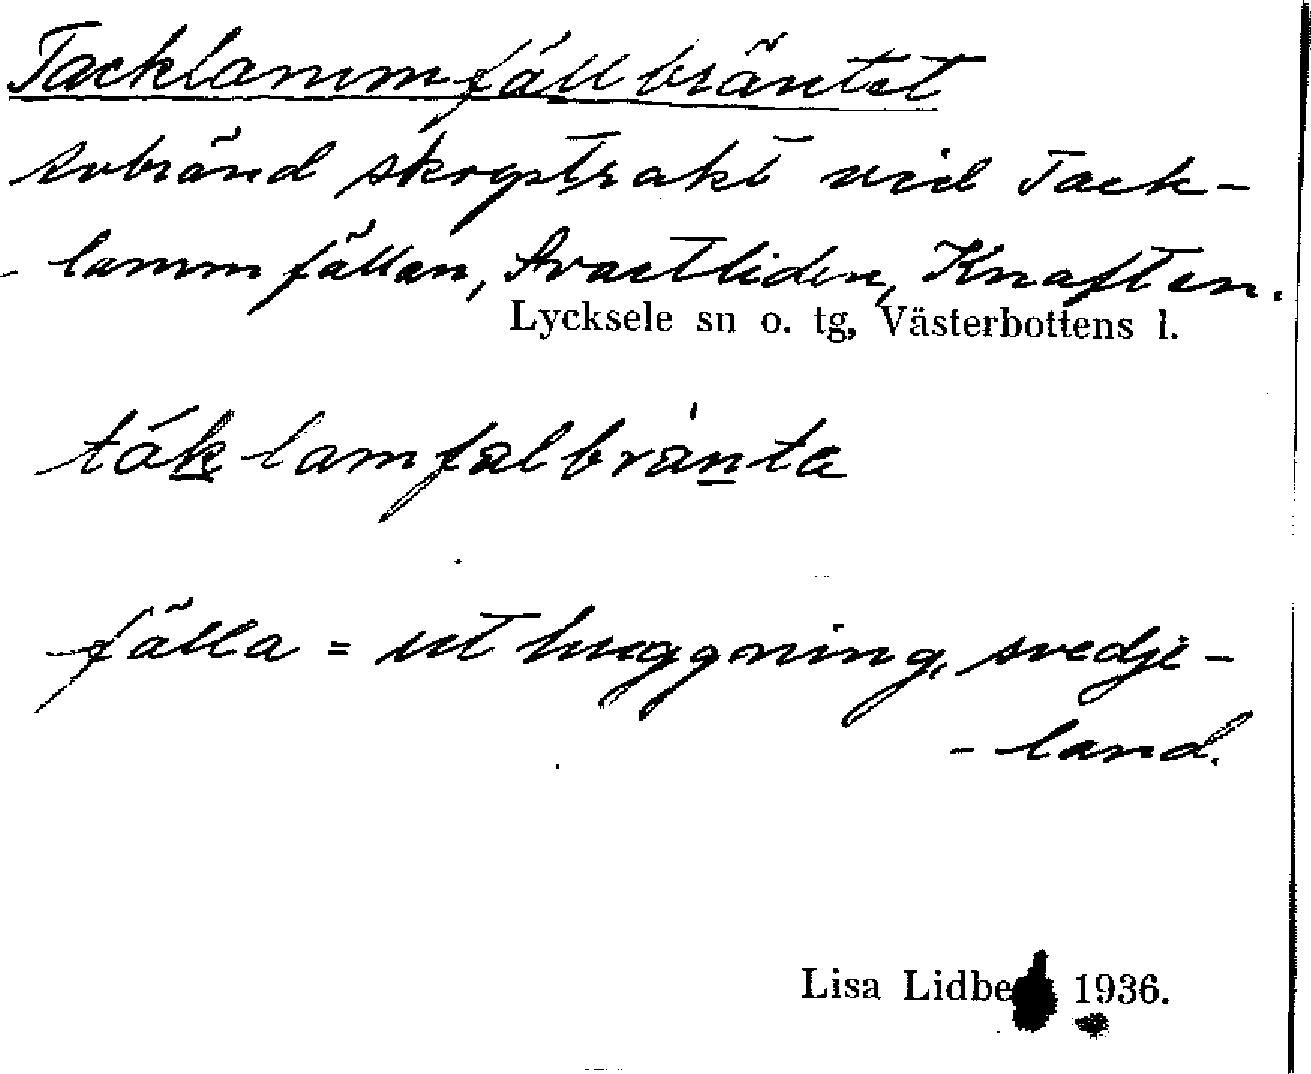 Tacklammfällbräntet
avbränd skogstrakt vid Tack-
- lammfällan, Svartliden, Knaften.
Lycksele sn o. tg, Västerbottens l.
táklamfalbränta
fälla = uthuggning, svedje-
- land.
Lisa Lidbe 1936.